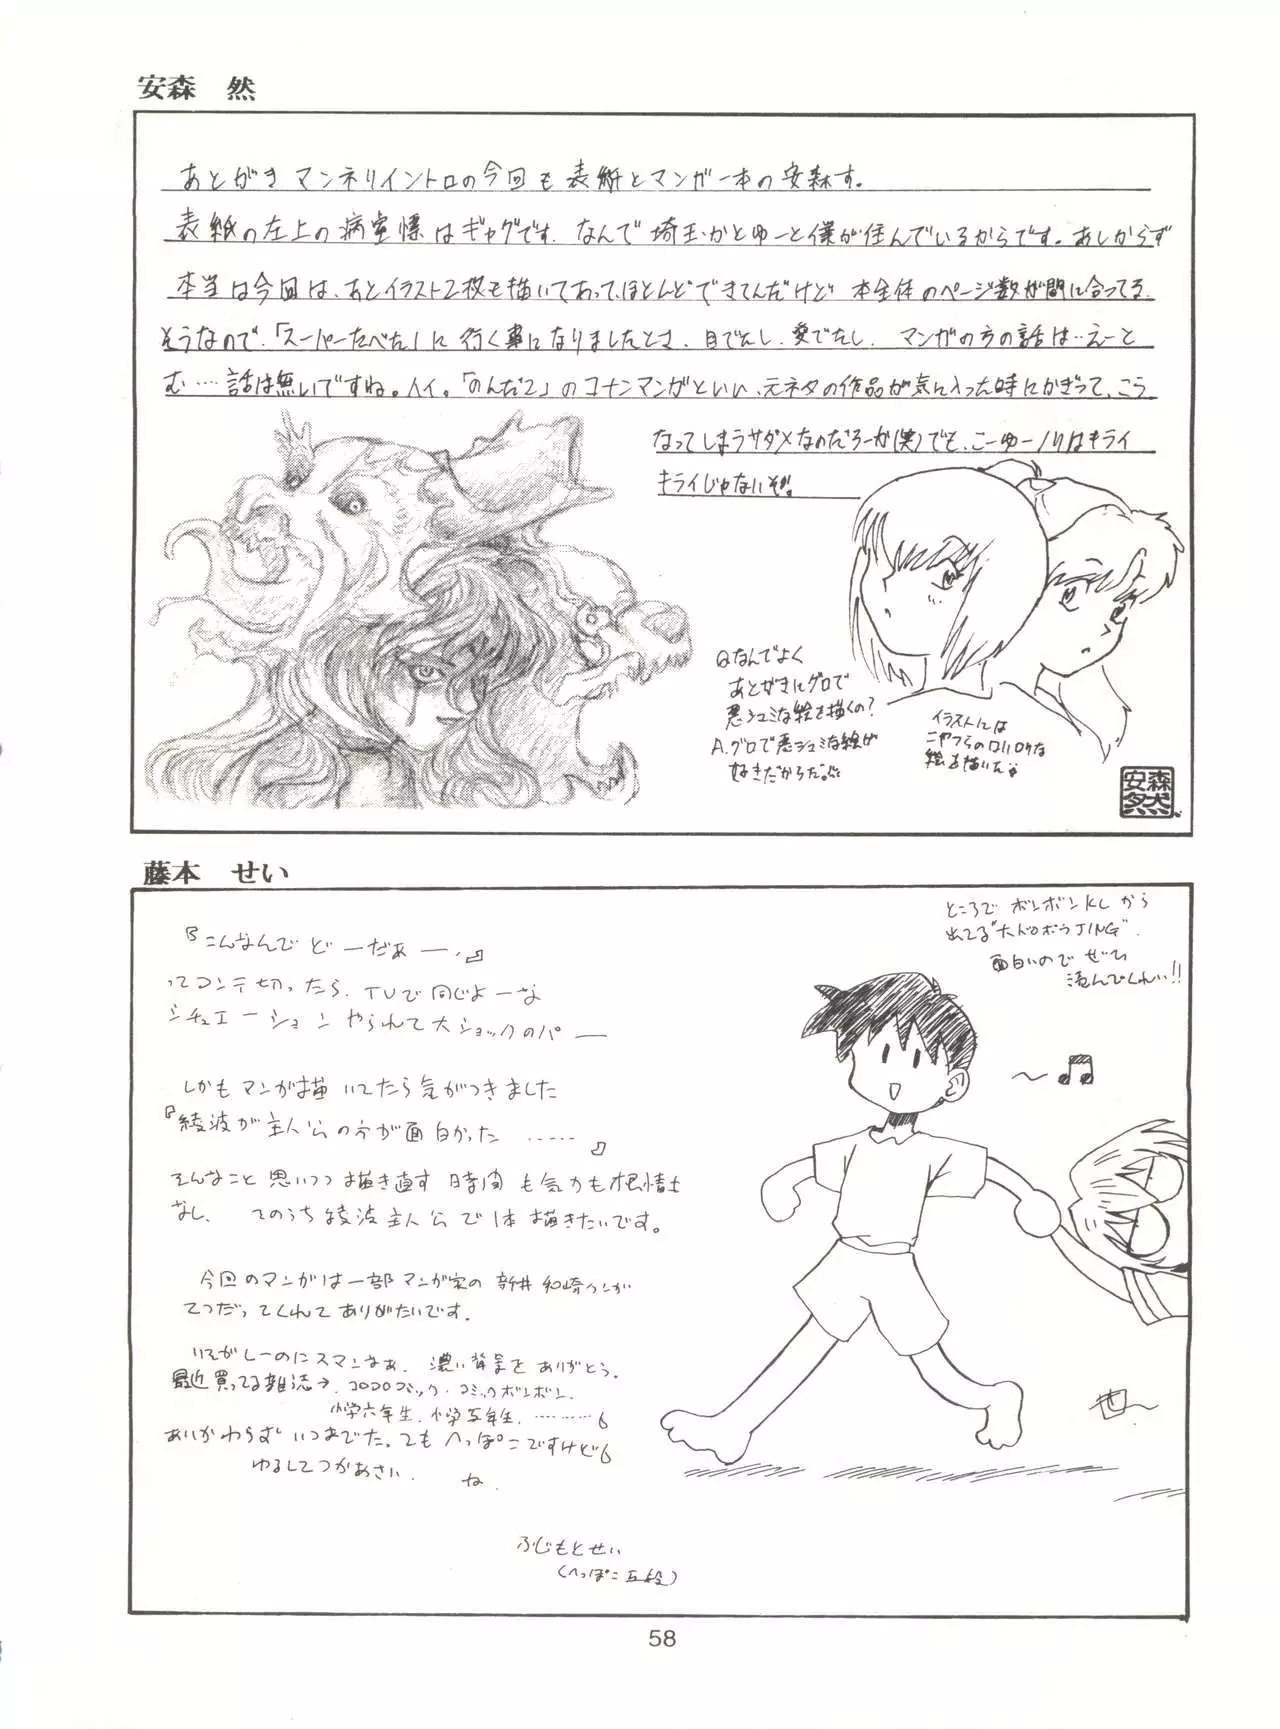 安森 然
あとがき マンネリイントロの今回も表紙とマンガ一本の安森す。
表紙の左上の病室標はギャグです. なんで埼玉かとゆーと僕が住んでいるからです。あしからず
本当は今回は、あとイラスト2枚も描いてあって、ほとんどできてんだけど 本全体のページ数が間に合ってる、
そうなので、「スーパーたべた」に行く事になりましたとさ、目でたし、愛でたし. マンガの方の話は…えーと
む……話は無いですね。ハイ。「のんだ2」のコナンマンガといい、元ネタの作品が気に入った時にかぎって、こう
なってしまうサダメなのだろーか(笑)でも、こーゆーノリはキライ
キライじゃないぞ!
Qなんでよく
あとがきにグロで
悪シュミな絵を描くの?
A.グロで悪シュミな絵が
好きだからだ。
イラストには
こやつらのロリロリな
絵も描いたよ
安森然
藤本 せい
ところで ボンボンKCから
出てる“大ドロボウJING”.
面白いので ぜひ
読んでくれい!!
『こんなんで どーだぁー、』
ってコンテ切ったら、TVで同じよーな
シチュエーションやられて大ショックのパー
しかもマンガ描いてたら気がつきました
『綾波が主人公の方が面白かった ……』
そんなこと思いつつ描き直す時間も気力も根情も
なし、 そのうち綾波主人公で1本描きたいです。
今回のマンガは一部マンガ家の 新井和崎クンが
てつだってくれてありがたいです。
いそがしーのにスマンなぁ. 濃い背景をありがとう.
最近買ってる雑誌→. コロコロコミック・コミックボンボン.
小学六年生. 小学五年生. ………
あいかわらず いつまでたってもへっぽこですけど
ゆるしてつかあさい. ね.
ふじもとせい
(へっぽこ五段)
58